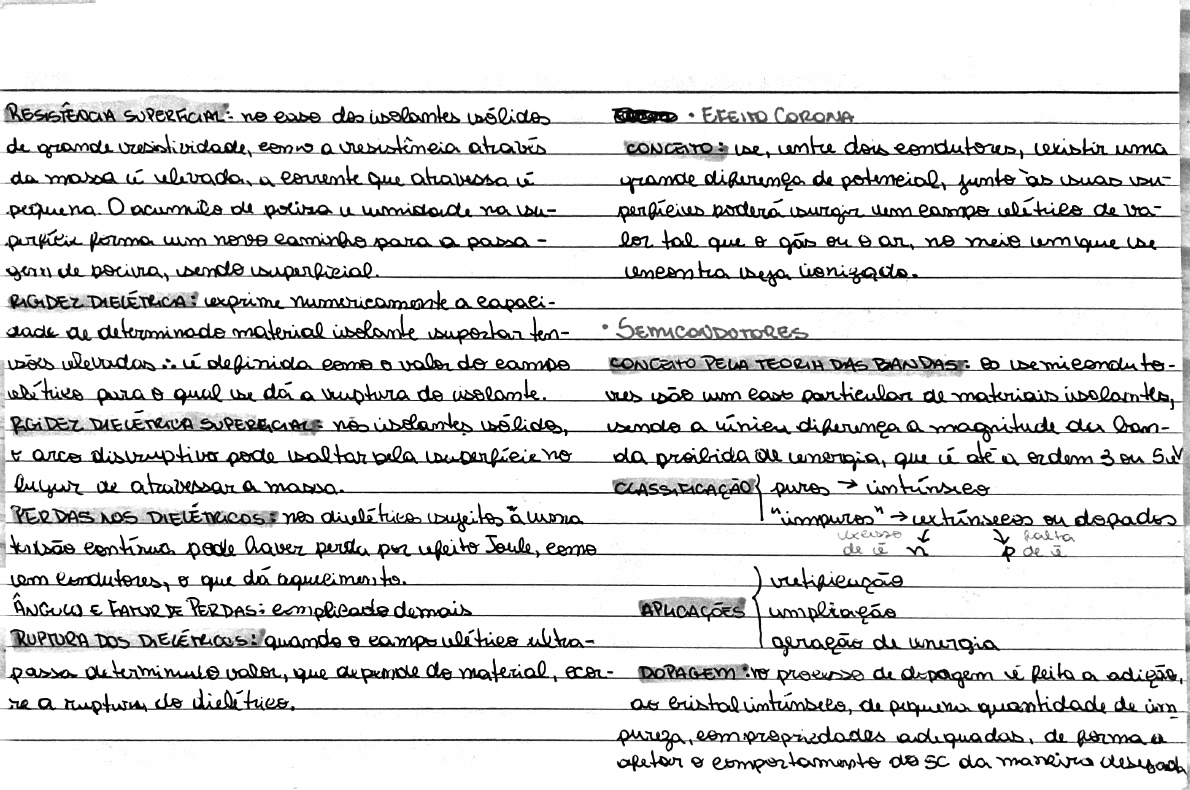 RESISTÊNCIA SUPERFICIAL: no caso dos isolantes sólidos
de grande resistividade, como a resistência através
da massa é elevada, a corrente que atravessa é
pequena. O acúmulo de poeira e umidade na su-
perfície forma um novo caminho para a passa-
gem de poeira, sendo superficial.
RIGIDEZ DIELÉTRICA: exprime numericamente a capaci-
dade de determinado material isolante suportar ten-
sões elevadas ∴ é definida como o valor do campo
elétrico para o qual se dá a ruptura do isolante.
RIGIDEZ DIELÉTRICA SUPERFICIAL: nos isolantes sólidos,
o arco disruptivo pode saltar pela superfície no
lugar de atravessar a massa.
PERDAS NOS DIELÉTRICOS: nos dielétricos sujeitos à uma
tensão contínua pode haver perda por efeito Joule, como
em condutores, o que dá aquecimento.
ÂNGULO E FATOR DE PERDAS: complicado demais
RUPTURA DOS DIELÉTRICOS: quando o campo elétrico ultra-
passa determinado valor, que depende do material, ocor-
re a ruptura do dielétrico.
• EFEITO CORONA
CONCEITO: se, entre dois condutores, existir uma
grande diferença de potencial, junto às suas su-
perfícies poderá surgir um campo elétrico de va-
lor tal que o gás ou o ar, no meio em que se
encontra seja ionizado.
• SEMICONDOTORES
CONCEITO PELA TEORIA DAS BANDAS: os semiconduto-
res são um caso particular de materiais isolantes,
sendo a única diferença a magnitude da ban-
da proibida de energia, que é até a ordem 3 ou 5eV
CLASSIFICAÇÃO { puros → intrínseco
"impuros" → extrínsecos ou dopados
excesso ↙ ↘ falta
de ē n p de ē
retificação
APLICAÇÕES { ampliação
geração de energia
DOPAGEM: no processo de dopagem é feita a adição,
ao cristal intrínseco, de pequena quantidade de im-
pureza, com propriedades adequadas, de forma a
afetar o comportamento do SC da maneira desejada